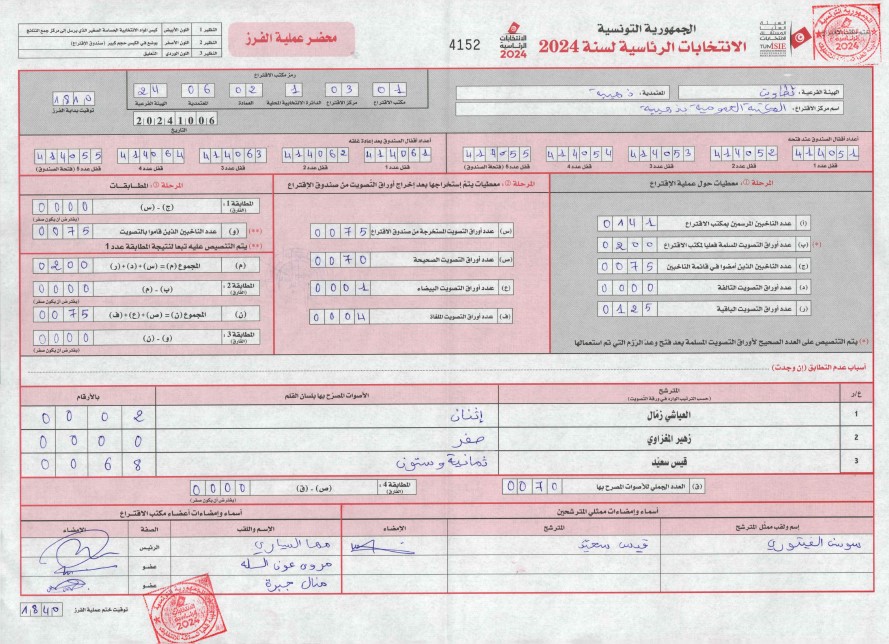 الجمهورية التونسية
الانتخابات الرئاسية لسنة 2024
الانتخابات الرئاسية 2024
4152
محضر عملية الفرز
النظير 1 اللون الأبيض
النظير 2 اللون الأبيض
النظير 3 اللون الوردي التعليق
الهيئة الفرعية: تطاوين
المعتمدية: ذهيبة
إسم مركز الإقتراع: المكتبة العمومية بذهيبة
رمز مكتب الإقتراع
01 03 1 02 06 24
مكتب الاقتراع مركز الاقتراع الدائرة الانتخابية المحلية العمادة المعتمدية الهيئة الفرعية
1810
توقيت بداية الفرز
20241006
التاريخ
أعداد أقفال الصندوق عند فتحه
414051 414052 414053 414054 414055
قفل عدد 1 قفل عدد 2 قفل عدد 3 قفل عدد 4 قفل عدد 5 (فتحة الصندوق)
أعداد أقفال الصندوق بعد إعادة غلقه
414061 414062 414063 414064 414055
قفل عدد 1 قفل عدد 2 قفل عدد 3 قفل عدد 4 قفل عدد 5 (فتحة الصندوق)
المرحلة ①: معطيات حول عملية الاقتراع
(أ) عدد الناخبين المرسمين بمكتب الاقتراع 0141
(*) (ب) عدد أوراق التصويت المسلمة فعليا لمكتب الاقتراع 0200
(ج) عدد الناخبين الذين أمضوا في قائمة الناخبين 0075
(د) عدد أوراق التصويت التالفة 0000
(ر) عدد أوراق التصويت الباقية 0125
(*) يتم التنصيص على العدد الصحيح لأوراق التصويت المسلمة بعد فتح وعد الرزم التي تم استعمالها
المرحلة ②: معطيات يتم إستخراجها بعد إخراج أوراق التصويت من صندوق الإقتراع
(س) عدد أوراق التصويت المستخرجة من صندوق الاقتراع 0075
(ص) عدد أوراق التصويت الصحيحة 0070
(ع) عدد أوراق التصويت البيضاء 0001
(ف) عدد أوراق التصويت الملغاة 0004
المرحلة ③: المطابقات
المطابقة 1: (الفارق) (ج) - (س) 0000
(يفترض أن يكون صفر)
(و) عدد الناخبين الذين قاموا بالتصويت 0075 (**)
(**) يتم التنصيص عليه تبعا لنتيجة المطابقة عدد 1
(م) المجموع (م) = (س) + (د) + (ر) 0200
المطابقة 2: (الفارق) (ب) - (م) 0000
(يفترض أن يكون صفر)
(ن) المجموع (ن) = (ص) + (ع) + (ف) 0075
المطابقة 3: (الفارق) (و) - (ن) 0000
(يفترض أن يكون صفر)
أسباب عدم التطابق (إن وجدت)
ع/ر المترشح الأصوات المصرح بها بلسان القلم بالأرقام
(حسب الترتيب الوارد في ورقة التصويت)
1 العياشي زمّال إثنان 0002
2 زهير المغزاوي صفر 0000
3 قيس سعيّد ثمانية وستون 0068
(ق) العدد الجملي للأصوات المصرح بها 0070
المطابقة 4: (الفارق) (ص) - (ق) 0000
(يفترض أن يكون صفر)
أسماء وإمضاءات ممثلي المترشحين
إسم ولقب ممثل المترشح المترشح الإمضاء
سوسن الفيتوري قيس سعيد
أسماء وإمضاءات أعضاء مكتب الاقتراع
الإسم واللقب الصفة الإمضاء
الرئيس
مروى عون الله عضو
منال جبرة عضو
1840
توقيت ختم عملية الفرز